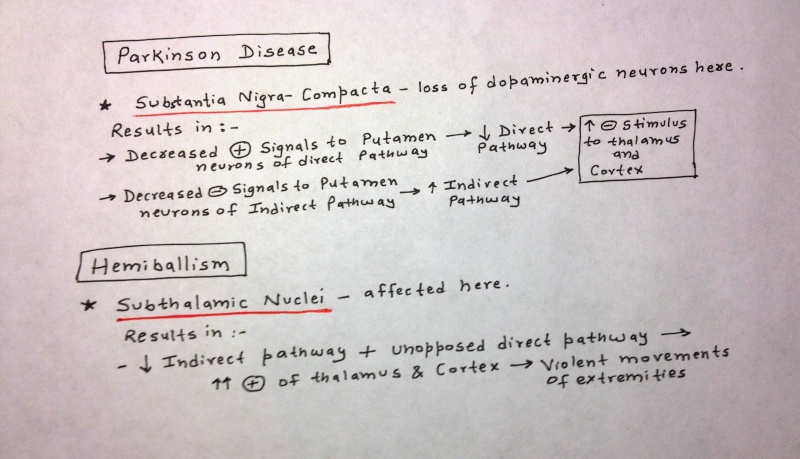 Parkinson Disease
* Substantia Nigra-Compacta - loss of dopaminergic neurons here.
Results in :-
→ Decreased ⊕ Signals to Putamen → ↓ Direct → ↑ ⊖ Stimulus
neurons of direct Pathway Pathway to thalamus
and
→ Decreased ⊖ Signals to Putamen → ↑ Indirect → Cortex
neurons of Indirect Pathway Pathway
Hemiballism
* Subthalamic Nuclei - affected here.
Results in :-
- ↓ Indirect pathway + unopposed direct pathway →
↑↑ ⊕ of thalamus & Cortex → Violent movements
of extremities